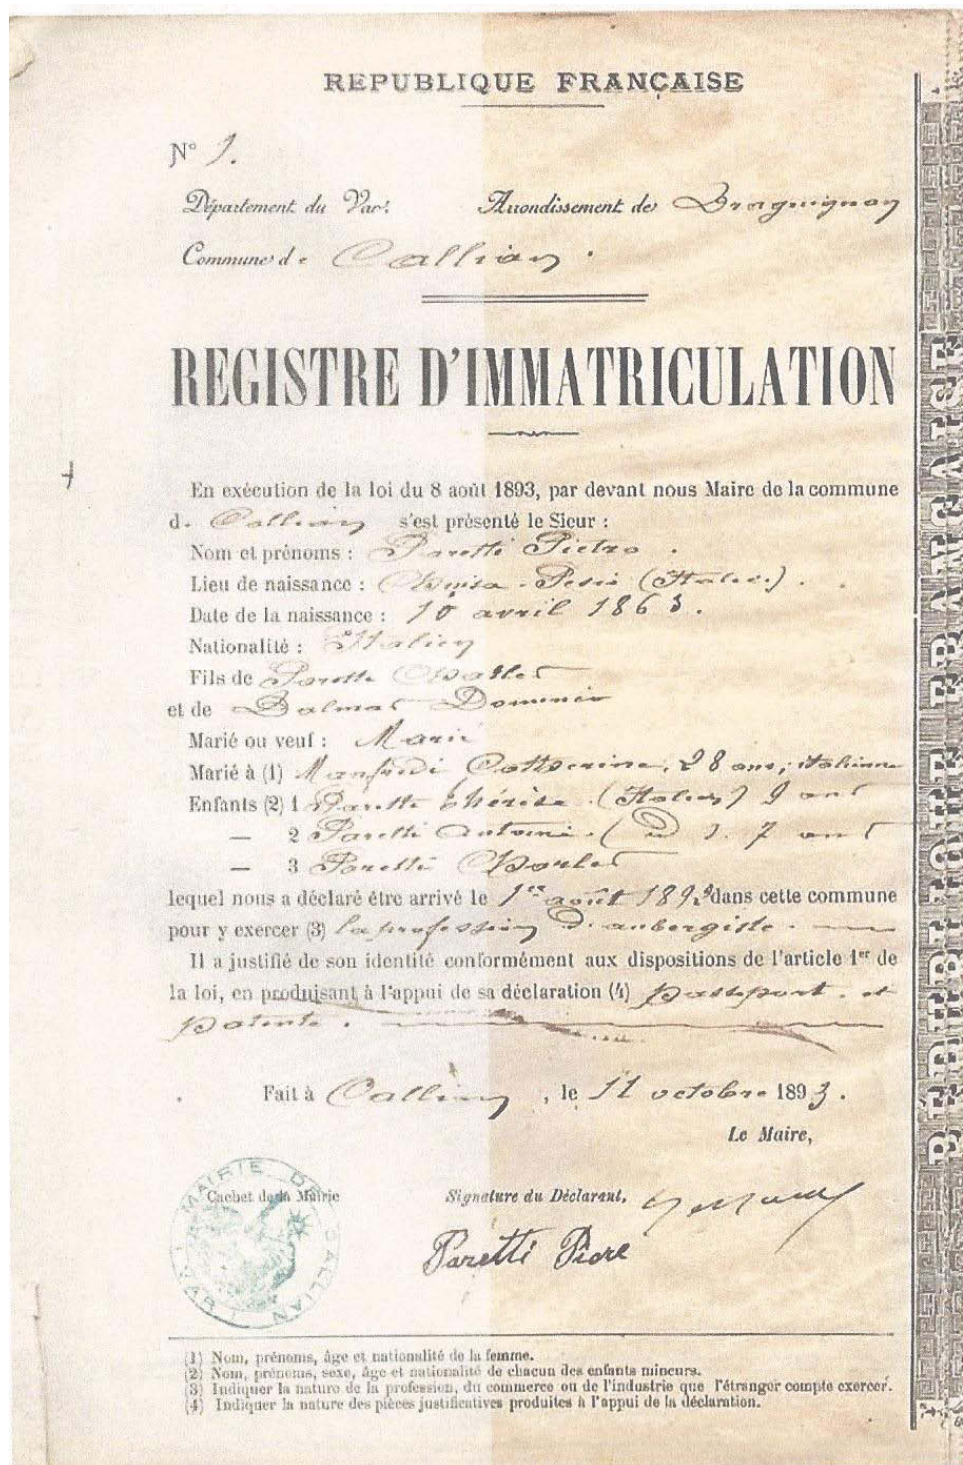 REPUBLIQUE FRANÇAISE
N° 1.
Département du Var. Arrondissement de Draguignan
Commune de Callian.
REGISTRE D'IMMATRICULATION
En exécution de la loi du 8 août 1893, par devant nous Maire de la commune
d. Callian s'est présenté le Sieur :
Nom et prénoms : Paretti Pietro.
Lieu de naissance : Chiusa-Pesio (Italie).
Date de la naissance : 10 avril 1863.
Nationalité : Italien
Fils de Paretti
et de Dalmas
Marié ou veuf : Marié
Marié à (1) Manfredi Catherine, 28 ans, italienne
Enfants (2) 1 Paretti thérèse (Italie) 9 ans
— 2 Paretti Antoine (id). 7 ans
— 3 Paretti Charles
lequel nous a déclaré être arrivé le 1er août 189 dans cette commune
pour y exercer (3) la profession d'aubergiste.
Il a justifié de son identité conformément aux dispositions de l'article 1er de
la loi, en produisant à l'appui de sa déclaration (4) passeport. et
patente.
Fait à Callian, le 11 octobre 1893.
Le Maire,
Cachet de la Mairie Signature du Déclarant,
Paretti
MAIRIE DE CALLIAN (VAR)
(1) Nom, prénoms, âge et nationalité de la femme.
(2) Nom, prénoms, sexe, âge et nationalité de chacun des enfants mineurs.
(3) Indiquer la nature de la profession, du commerce ou de l'industrie que l'étranger compte exercer.
(4) Indiquer la nature des pièces justificatives produites à l'appui de la déclaration.
RÉPUBLIQUE FRANÇAISE